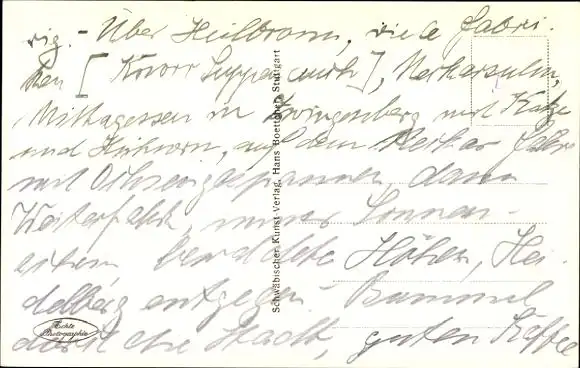 rig. - Über Heilbronn, viele Fabri-
ken [Knorr Suppen auch], Neckarsulm,
Mittagessen in Zwingenberg mit Katze
und, auf dem Neckar Fähre
mit Ochsengespannen, dann
Weiterfahrt, immer Sonnen-
schein, bewaldete Höhen, Hei-
delberg entgegen. Bummel
durch die Stadt, guten Kaffee
Schwäbischer Kunst-Verlag, Hans Boettcher, Stuttgart
Echte
Photographie